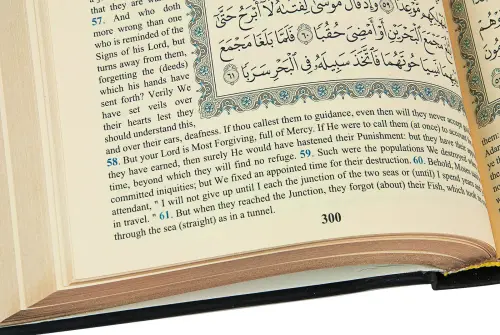 that they are
57. And who doth
more wrong than one
who is reminded of the
Signs of his Lord, but
turns away from them,
forgetting the (deeds)
which his hands have
sent forth? Verily We
have set veils over
their hearts lest they
should understand this,
مَّوْعِدًا ٥٩ وَإِذْ قَالَ مُوسَىٰ لِفَتَىٰهُ لَآ أَبْرَحُ حَتَّىٰ
مَجْمَعَ ٱلْبَحْرَيْنِ أَوْ أَمْضِيَ حُقُبًا ٦٠ فَلَمَّا بَلَغَا مَجْمَعَ
نَسِيَا حُوتَهُمَا فَٱتَّخَذَ سَبِيلَهُۥ فِي ٱلْبَحْرِ سَرَبًا ٦١
and over their ears, deafness. If thou callest them to guidance, even then will they never accept
58. But your Lord is Most Forgiving, full of Mercy. If He were to call them (at once) to account
they have earned, then surely He would have hastened their Punishment: but they have their
time, beyond which they will find no refuge. 59. Such were the populations We destroyed
committed iniquities; but We fixed an appointed time for their destruction. 60. Behold, Moses
attendant, " I will not give up until I each the junction of the two seas or (until) I spend years
in travel. " 61. But when they reached the Junction, they forgot (about) their Fish, which took
through the sea (straight) as in a tunnel.
300